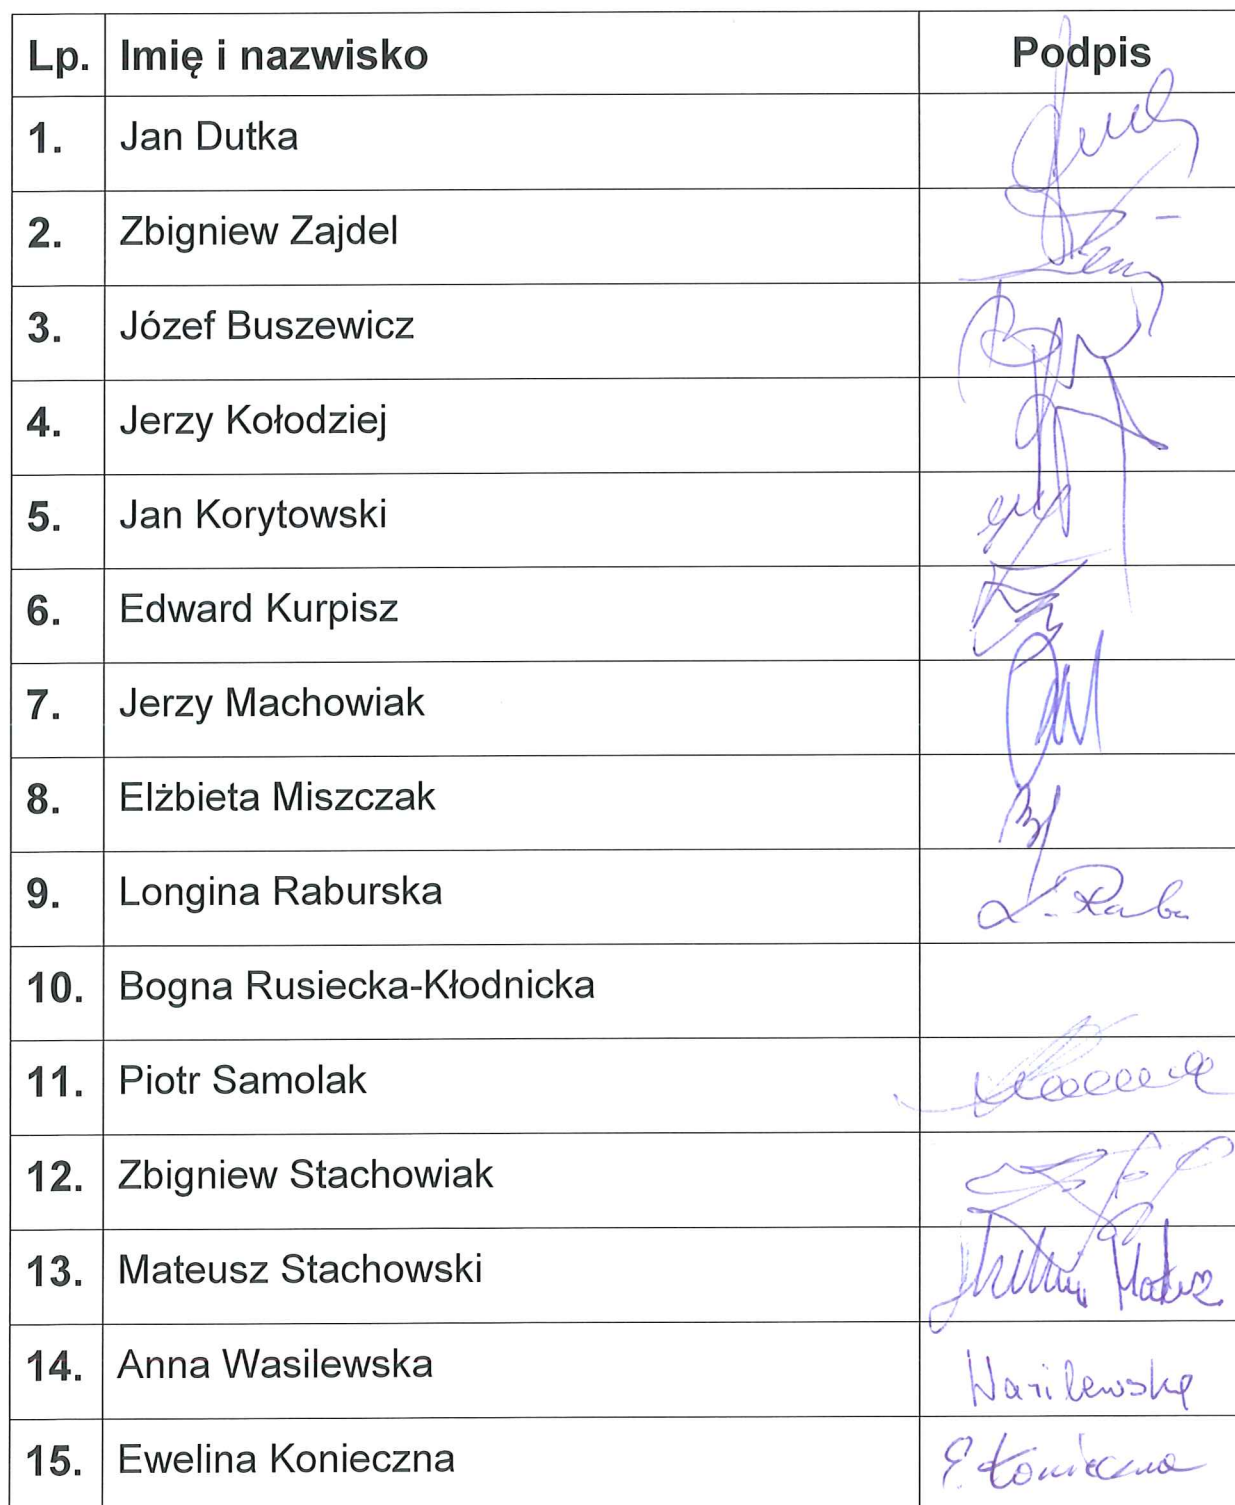 Lp. Imię i nazwisko Podpis
1. Jan Dutka
2. Zbigniew Zajdel
3. Józef Buszewicz
4. Jerzy Kołodziej
5. Jan Korytowski
6. Edward Kurpisz
7. Jerzy Machowiak
8. Elżbieta Miszczak
9. Longina Raburska L. Rabu
10. Bogna Rusiecka-Kłodnicka
11. Piotr Samolak
12. Zbigniew Stachowiak
13. Mateusz Stachowski
14. Anna Wasilewska Wasilewska
15. Ewelina Konieczna E. Konieczna